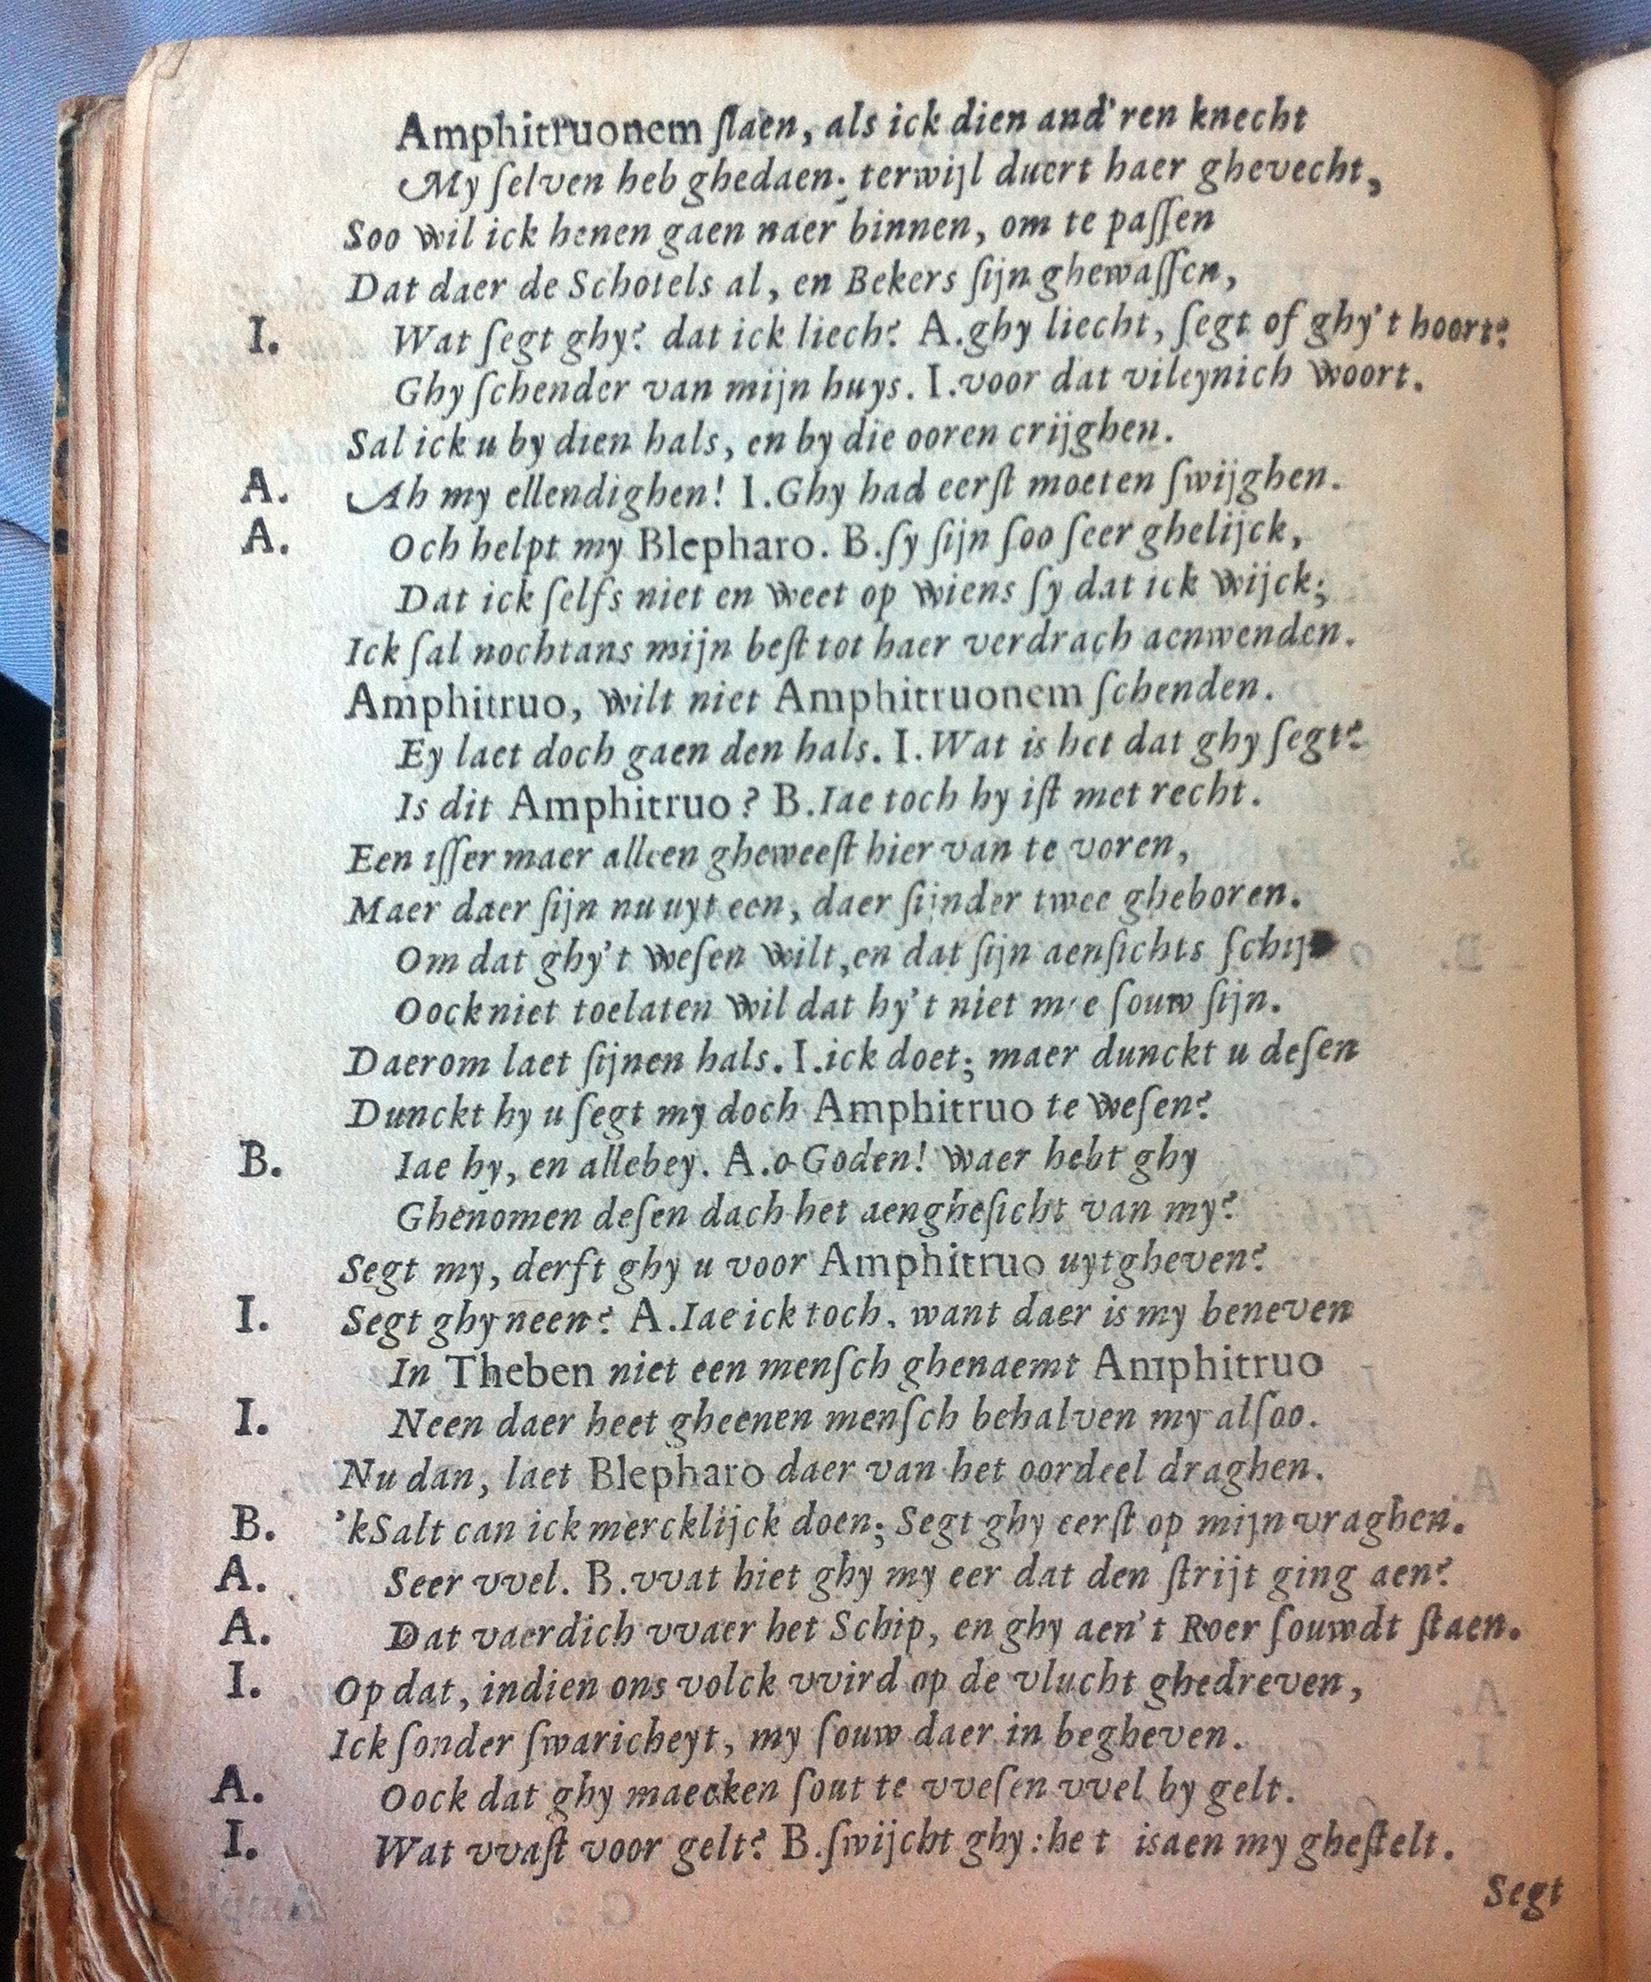 Amphitruonem ſlaen, als ick dien and'ren knecht
My ſelven heb ghedaen; terwijl duert haer ghevecht,
Soo wil ick henen gaen naer binnen, om te paſſen
Dat daer de Schotels al, en Bekers ſijn ghewaſſen,
I. Wat ſegt ghy? dat ick liech? A.ghy liecht, ſegt of ghy't hoort?
Ghy ſchender van mijn huys. I.voor dat vileynich woort.
Sal ick u by dien hals, en by die ooren crijghen.
A. Ah my ellendighen! I.Ghy had eerſt moeten ſwijghen.
A. Och helpt my Blepharo. B.ſy ſijn ſoo ſeer ghelijck,
Dat ick ſelfs niet en weet op wiens ſy dat ick wijck;
Ick ſal nochtans mijn beſt tot haer verdrach aenwenden.
Amphitruo, wilt niet Amphitruonem ſchenden.
Ey laet doch gaen den hals. I.Wat is het dat ghy ſegt?
Is dit Amphitruo? B.Iae toch hy iſt met recht.
Een iſſer maer alleen gheweeſt hier van te voren,
Maer daer ſijn nu uyt een, daer ſijnder twee gheboren.
Om dat ghy't weſen wilt, en dat ſijn aenſichts
Oock niet toelaten wil dat hy't niet ſouw ſijn.
Daerom laet ſijnen hals. I.ick doet; maer dunckt u deſen
Dunckt hy u ſegt my doch Amphitruo te weſen?
B. Iae hy, en allebey. A.o Goden! waer hebt ghy
Ghenomen deſen dach het aengheſicht van my?
Segt my, derft ghy u voor Amphitruo uytgheven?
I. Segt ghy neen? A.Iae ick toch, want daer is my beneven
In Theben niet een menſch ghenaemt Amphitruo
I. Neen daer heet gheenen menſch behalven my alſoo.
Nu dan, laet Blepharo daer van het oordeel draghen.
B. 'kSalt can ick mercklijck doen; Segt ghy eerſt op mijn vraghen.
A. Seer vvel. B.vvat hiet ghy my eer dat den ſtrijt ging aen?
A. Dat vaerdich vvaer het Schip, en ghy aen't Roer ſouwdt ſtaen.
I. Op dat, indien ons volck vvird op de vlucht ghedreven,
Ick ſonder ſwaricheyt, my ſouw daer in begheven.
A. Oock dat ghy maecken ſout te vveſen vvel by gelt.
I. Wat vvaſt voor gelt? B.ſwijcht ghy: het isaen my gheſtelt.
Segt